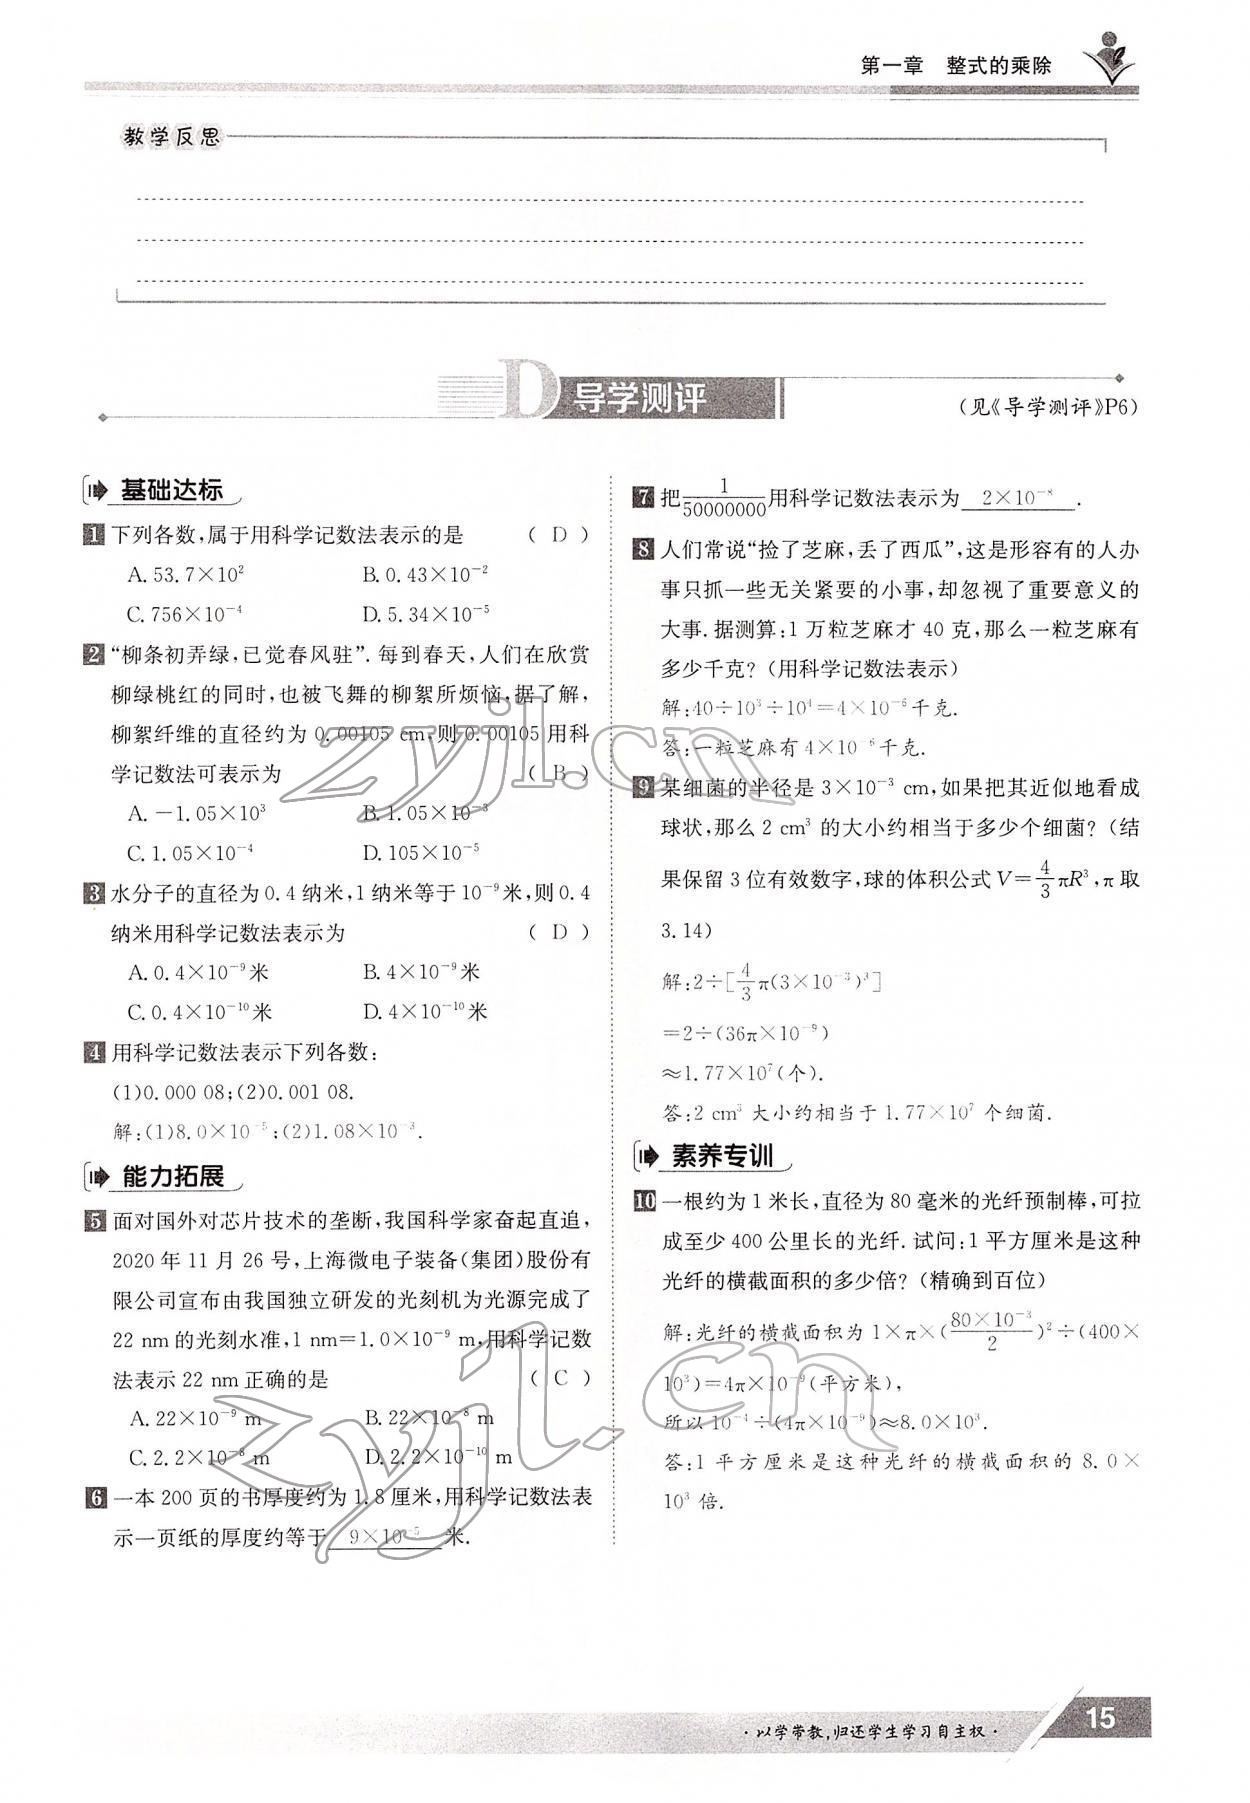 第一章 整式的乘除
教学反思
D 导学测评
(见《导学测评》P6)
基础达标
1 下列各数,属于用科学记数法表示的是 ( D )
A. 53.7×10² B. 0.43×10⁻²
C. 756×10⁻⁴ D. 5.34×10⁻⁵
2 “柳条初弄绿,已觉春风驻”. 每到春天,人们在欣赏
柳绿桃红的同时,也被飞舞的柳絮所烦恼,据了解,
柳絮纤维的直径约为 0.00105 cm,则 0.00105 用科
学记数法可表示为 ( B )
A. －1.05×10³ B. 1.05×10⁻³
C. 1.05×10⁻⁴ D. 105×10⁻⁵
3 水分子的直径为 0.4 纳米,1 纳米等于 10⁻⁹ 米,则 0.4
纳米用科学记数法表示为 ( D )
A. 0.4×10⁻⁹ 米 B. 4×10⁻⁹ 米
C. 0.4×10⁻¹⁰ 米 D. 4×10⁻¹⁰ 米
4 用科学记数法表示下列各数:
(1)0.000 08;(2)0.001 08.
解:(1)8.0×10⁻⁵;(2)1.08×10⁻³.
能力拓展
5 面对国外对芯片技术的垄断,我国科学家奋起直追,
2020 年 11 月 26 号,上海微电子装备(集团)股份有
限公司宣布由我国独立研发的光刻机为光源完成了
22 nm 的光刻水准,1 nm=1.0×10⁻⁹ m,用科学记数
法表示 22 nm 正确的是 ( C )
A. 22×10⁻⁹ m B. 22×10⁻⁸ m
C. 2.2×10⁻⁸ m D. 2.2×10⁻¹⁰ m
6 一本 200 页的书厚度约为 1.8 厘米,用科学记数法表
示一页纸的厚度约等于 9×10⁻⁵ 米.
7 把 1/50000000 用科学记数法表示为 2×10⁻⁸ .
8 人们常说“捡了芝麻,丢了西瓜”,这是形容有的人办
事只抓一些无关紧要的小事,却忽视了重要意义的
大事. 据测算:1 万粒芝麻才 40 克,那么一粒芝麻有
多少千克? (用科学记数法表示)
解:40÷10³÷10⁴=4×10⁻⁶ 千克.
答:一粒芝麻有 4×10⁻⁶ 千克.
9 某细菌的半径是 3×10⁻³ cm,如果把其近似地看成
球状,那么 2 cm³ 的大小约相当于多少个细菌? (结
果保留 3 位有效数字,球的体积公式 V=4/3πR³,π 取
3.14)
解:2÷[4/3π(3×10⁻³)³]
=2÷(36π×10⁻⁹)
≈1.77×10⁷(个).
答:2 cm³ 大小约相当于 1.77×10⁷ 个细菌.
素养专训
10 一根约为 1 米长,直径为 80 毫米的光纤预制棒,可拉
成至少 400 公里长的光纤. 试问:1 平方厘米是这种
光纤的横截面积的多少倍? (精确到百位)
解:光纤的横截面积为 1×π×(80×10⁻³/2)²÷(400×
10³)=4π×10⁻⁹(平方米),
所以 10⁻⁴÷(4π×10⁻⁹)≈8.0×10³.
答:1 平方厘米是这种光纤的横截面积的 8.0×
10³ 倍.
zyjl.cn
zyjl.cn
·以学带教,归还学生学习自主权·
15